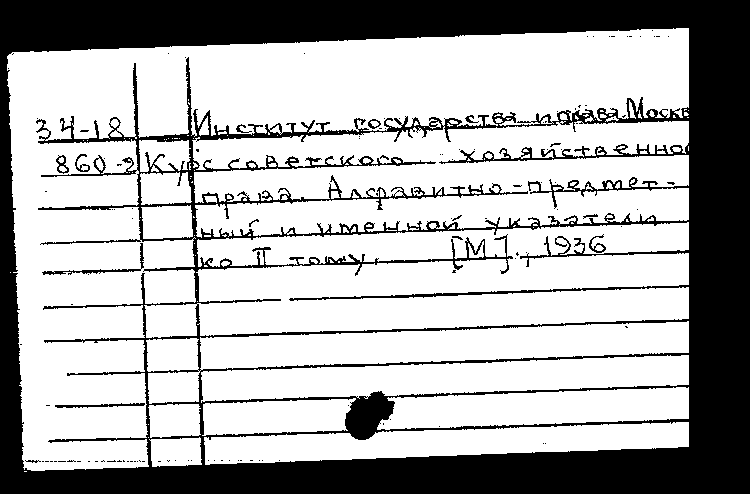 34-18 Институт государства и права. Москв
860-2 Курс советского хозяйственно
права. Алфавитно-предмет-
ный и именной указатели
ко II тому. [М.], 1936